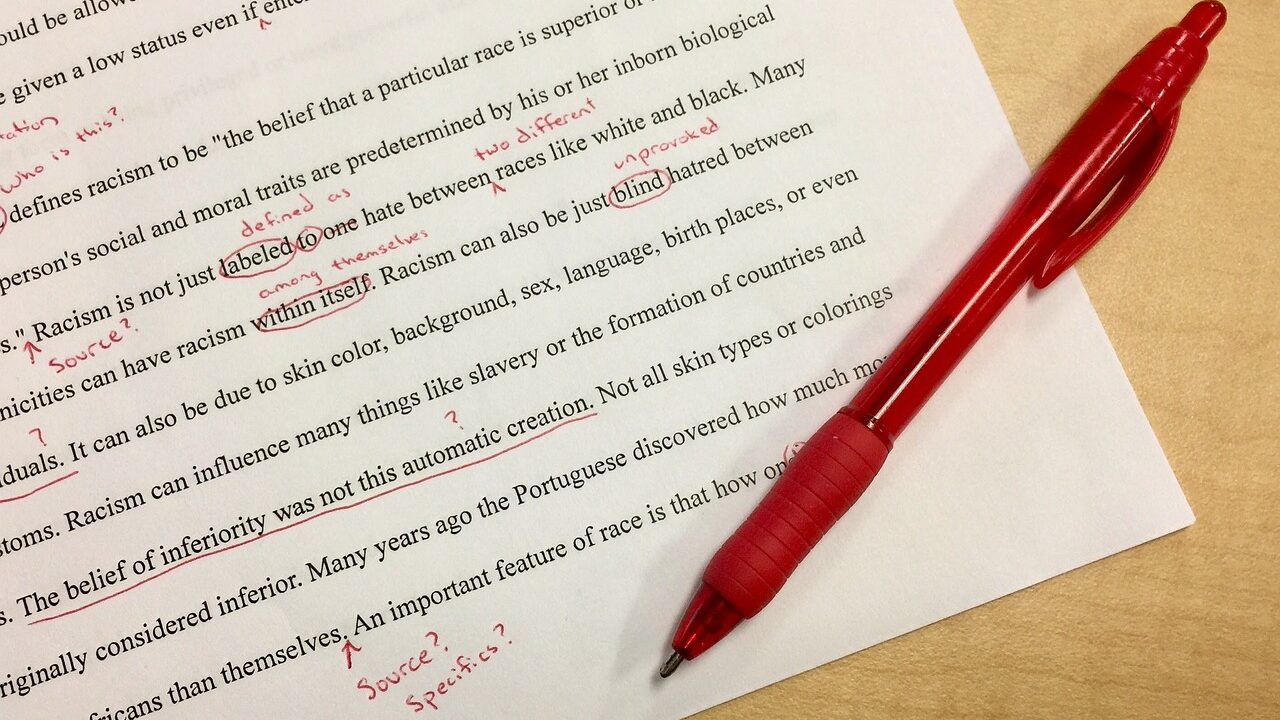 ould be allow
e given a low status even if ente
tation
who is this?
defines racism to be "the belief that a particular race is superior or
person's social and moral traits are predetermined by his or her inborn biological
two different
defined as
s." Racism is not just labeled to one hate between races like white and black. Many
Source?
unprovoked
among themselves
nicities can have racism within itself. Racism can also be just blind hatred between
?
duals. It can also be due to skin color, background, sex, language, birth places, or even
stoms. Racism can influence many things like slavery or the formation of countries and
?
s. The belief of inferiority was not this automatic creation. Not all skin types or colorings
riginally considered inferior. Many years ago the Portuguese discovered how much mo
fricans than themselves. An important feature of race is that how on
Source?
Specifics?